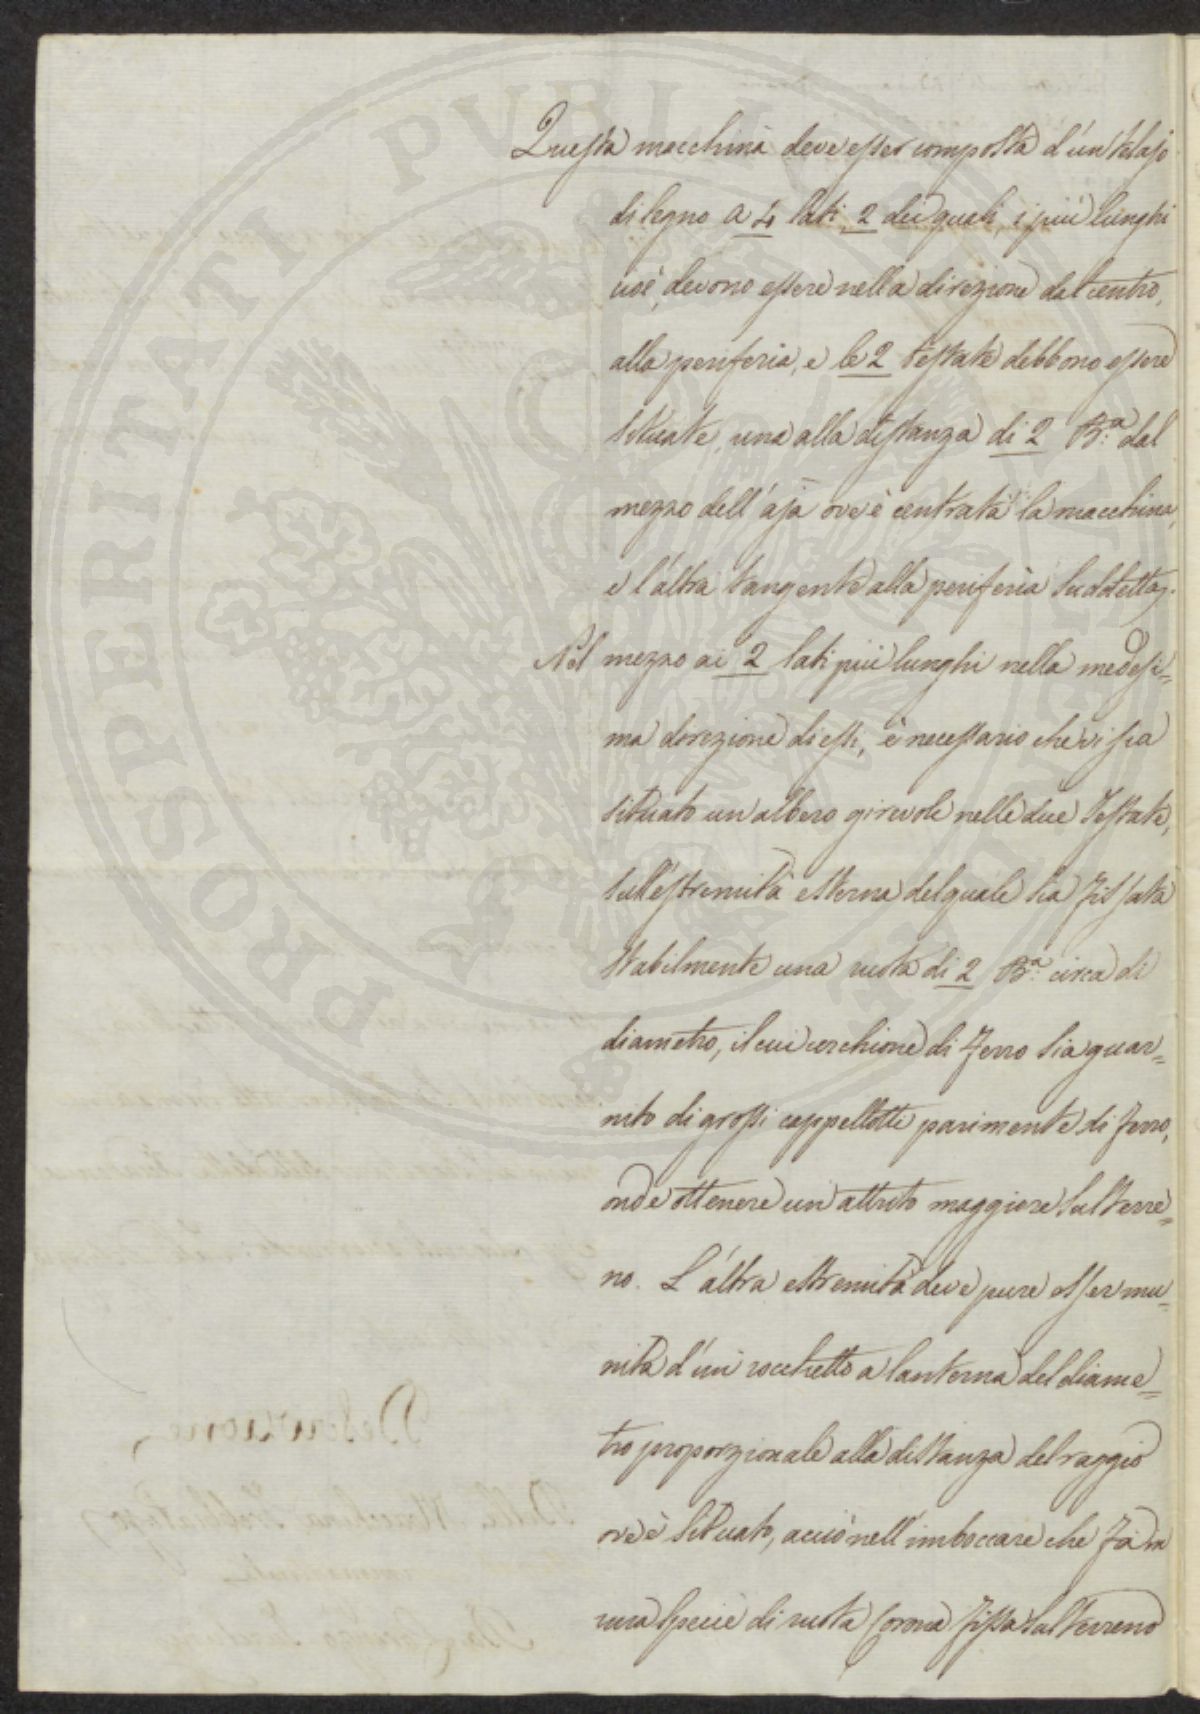 Questa macchina deve esser composta d'un telajo
di legno a 4 lati, 2 dei quali, i più lunghi
cioè, devono essere nella direzione dal centro,
alla periferia, e le 2 testate debbono essere
situate, una alla distanza di 2 B.ª dal
mezzo dell'aja ov'è centrata la macchina,
e l'altra tangente alla periferia suddetta.
Nel mezzo ai 2 lati più lunghi nella medesi=
ma direzione di essi, è necessario che vi sia
situato un albero girevole nelle due Testate,
sull'estremità esterna del quale sia fissata
stabilmente una ruota di 2 B.ª circa di
diametro, il cui cerchione di ferro sia guar=
nito di grossi cappellotti parimente di ferro,
onde ottenere un attrito maggiore sul terre=
no. L'altra estremità deve pure esser mu=
nita d'un rocchetto a lanterna del diame=
tro proporzionale alla distanza del raggio
ov'è situato, acciò nell'imboccare che fa in
una specie di ruota Corona fissa sul terreno
PROSPERITATI PUBLICAE